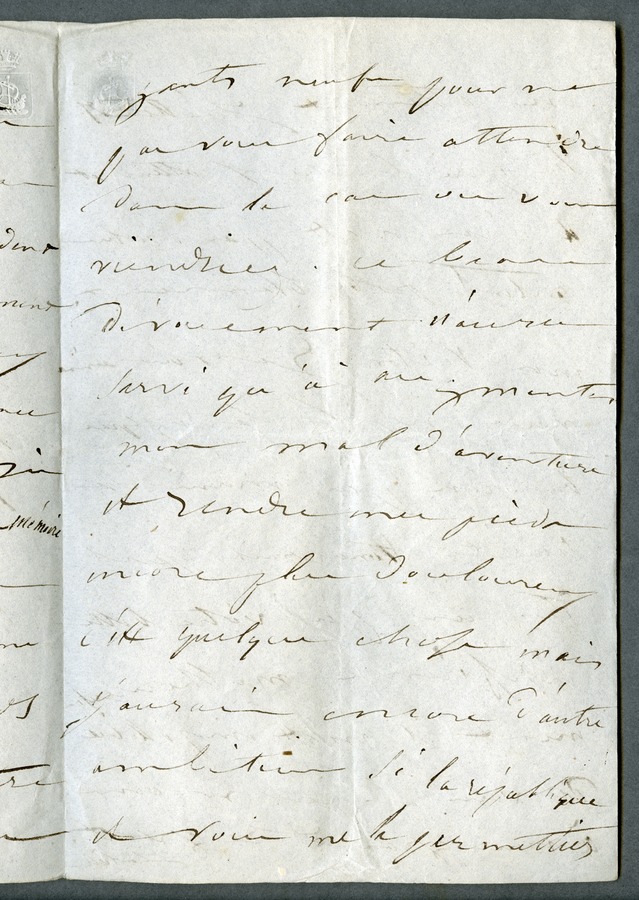 gants neufs pour ne
pas vous faire attendre
dans le cas ou vous
viendriez. ce beau
dévouement n'aura
servi qu'à augmenter
mon mal d'aventure
et rendre mes pieds
encore plus douloureux
c'est quelque chose mais
j'aurais encore d'autre
ambition si la république
et vous me le permettiez
mémoire